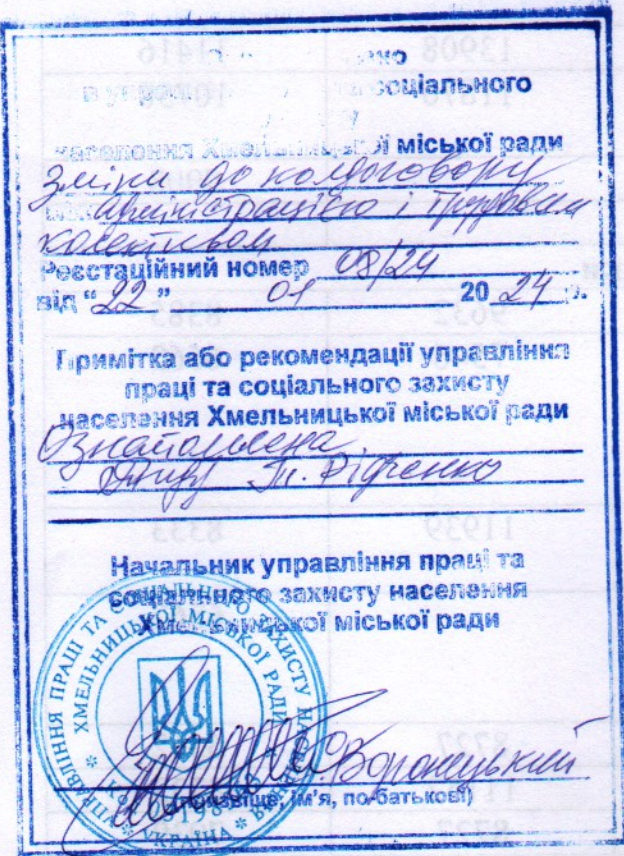 соціального
населення Хмельницької міської ради
Зміни до колдоговору
адміністрацією і трудовим
колективом
Реєстаційний номер 08/24
від “22” 01 2024 р.
Примітка або рекомендації управління
праці та соціального захисту
населення Хмельницької міської ради
Ознайомлена
Начальник управління праці та
соціального захисту населення
Хмельницької міської ради
УПРАВЛІННЯ ПРАЦІ ТА СОЦІАЛЬНОГО ЗАХИСТУ НАСЕЛЕННЯ
ХМЕЛЬНИЦЬКОЇ МІСЬКОЇ РАДИ
УКРАЇНА
Воронецький
(прізвище, ім’я, по-батькові)